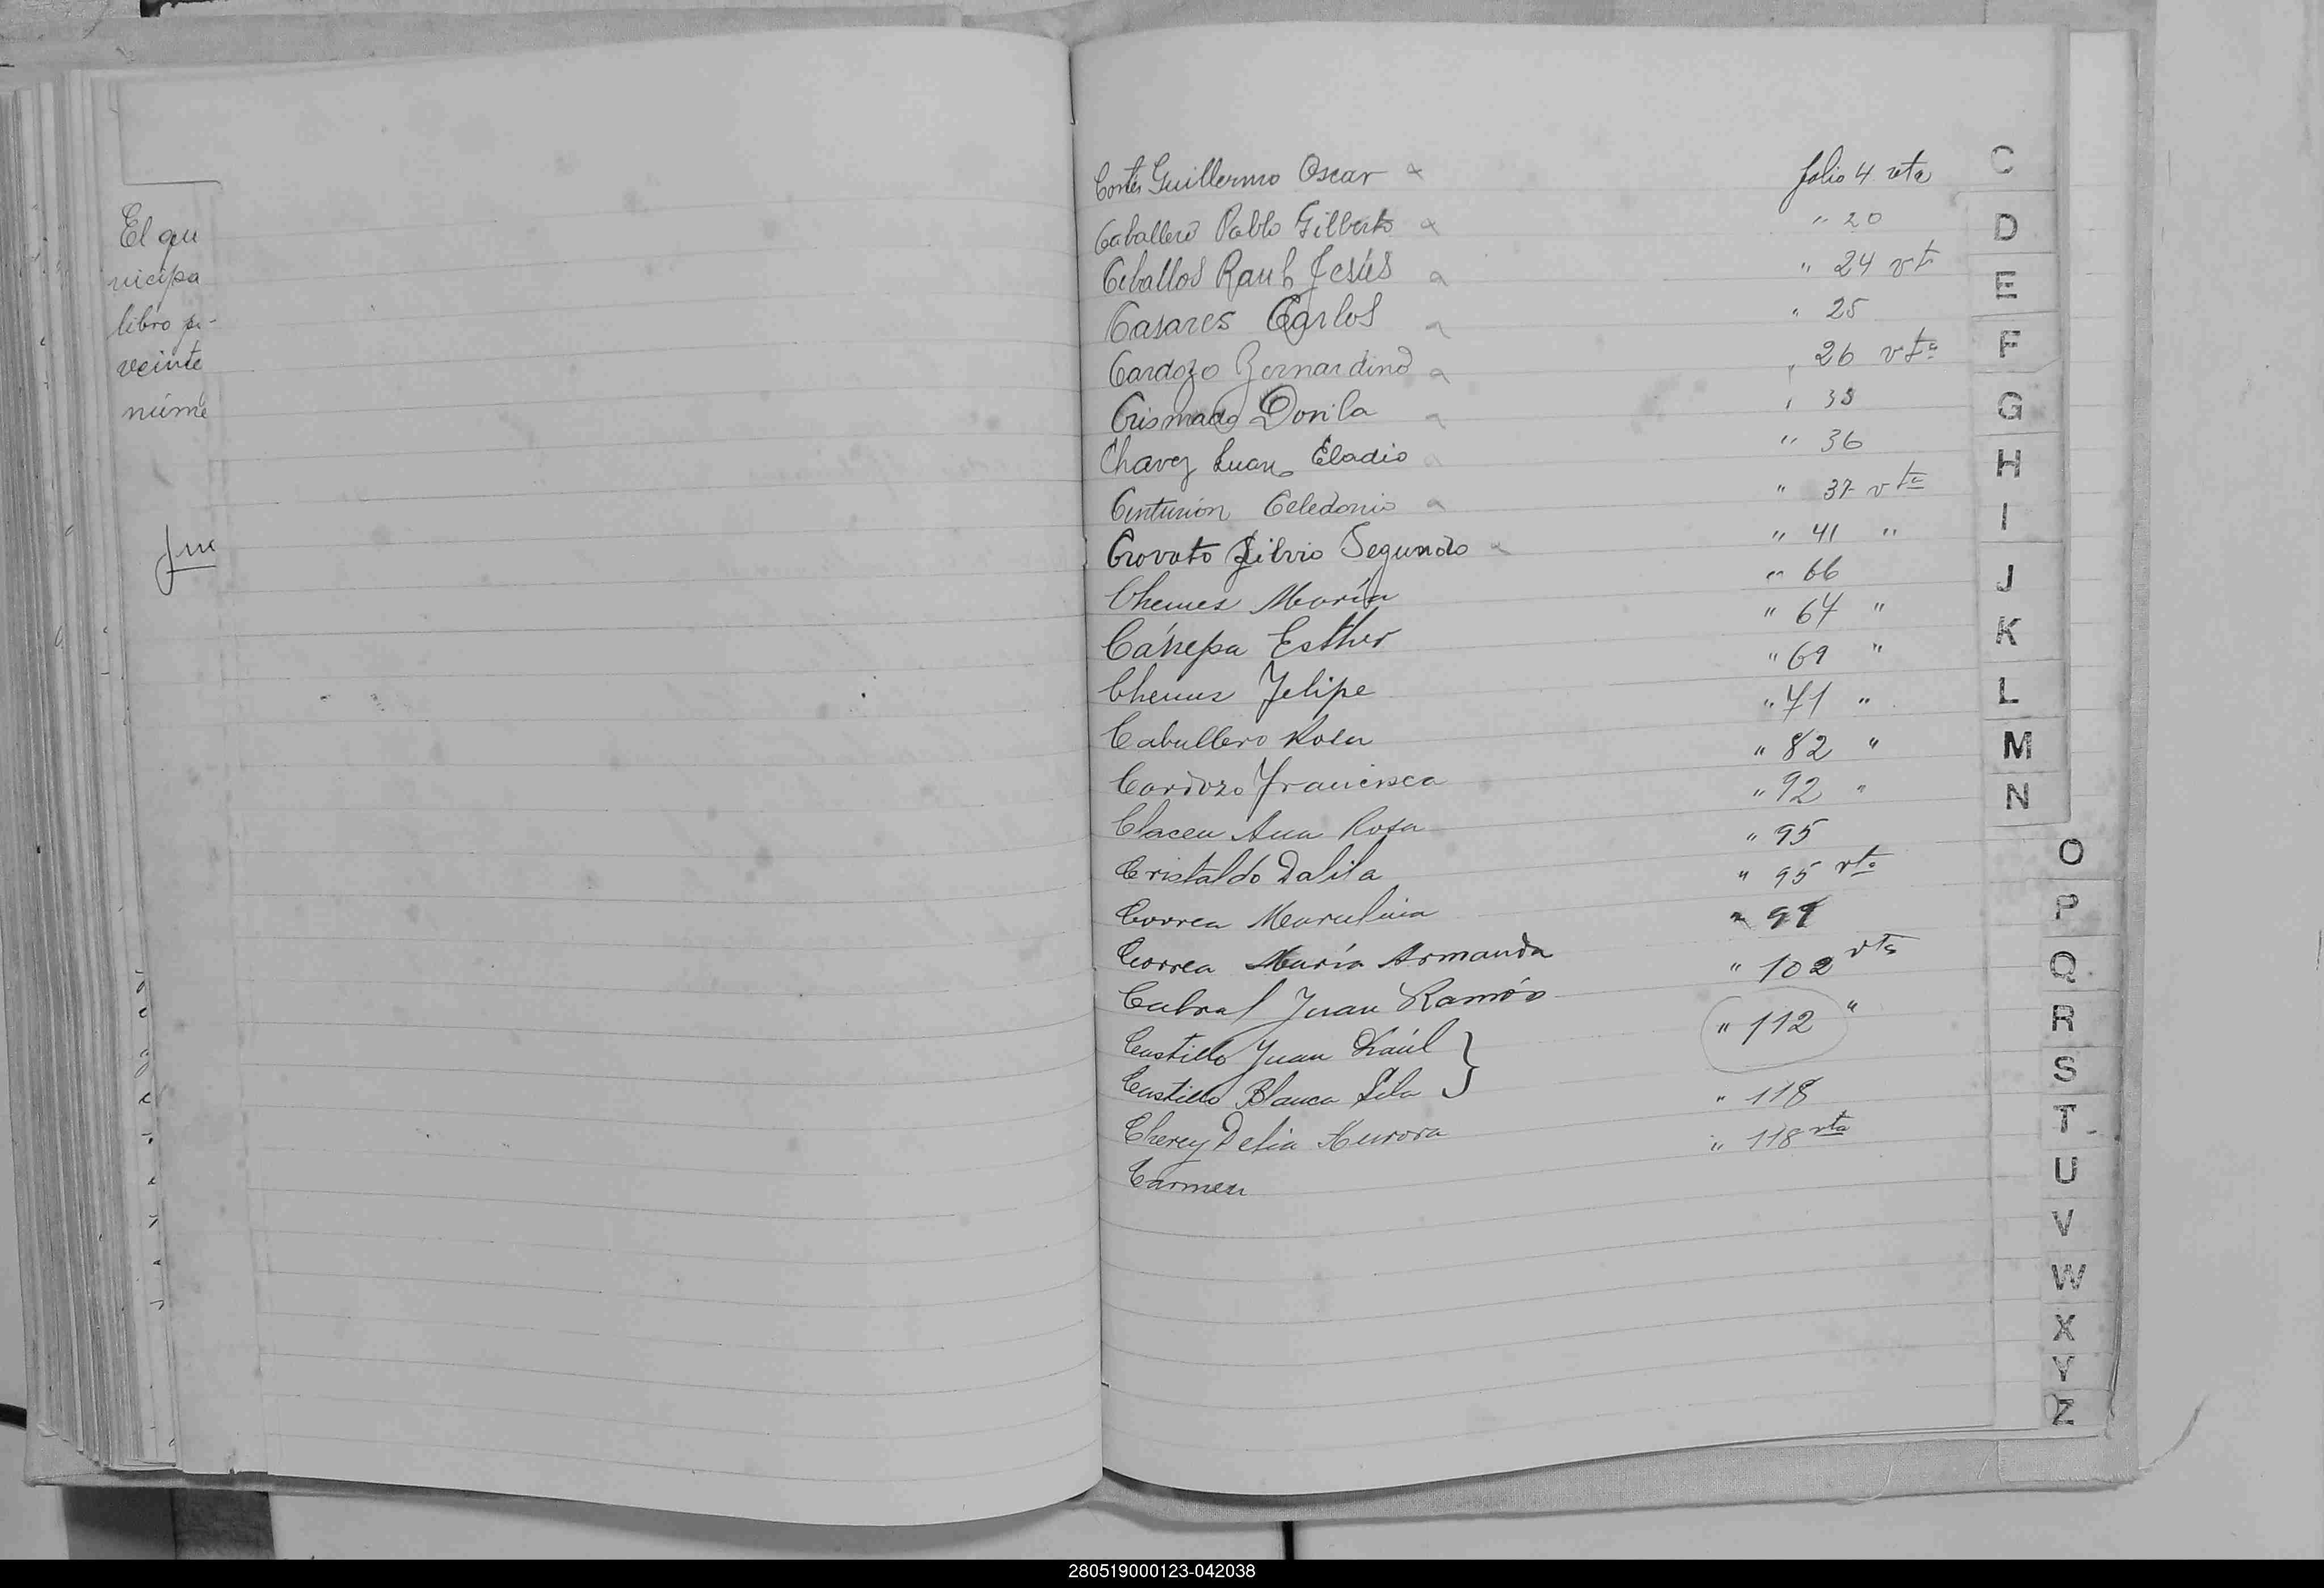 El qu
nicipa
libro p-
veinte
núme
Jue
Cortés Guillermo Oscar folio 4 vta
Caballero Pablo Gilberto " 20
Ceballos Raul Jesús " 24 vta
Casares Carlos " 25
Cardozo Bernardino " 26 vta
Crismado Dorila " 35
Chavez Luan Eladio " 36
Centurión Celedonio " 37 vta
Crovato Silvio Segundo " 41 "
Chemes María " 66
Cánepa Esther " 67 "
Chemes Felipe " 69 "
Caballero Rosa " 71 "
Cardozo Francisca " 82 "
Ana Rosa " 92 "
Cristaldo Dalila " 95
Correa Marculina " 95 vta
Correa María Armanda " 99
Cabral Juan Ramón " 102 vta
Castillo Juan Raúl }
Castillo Blanca Lila } " 112 "
Cherey Delia Aurora " 118
Carmen " 118 vta
C
D
E
F
G
H
I
J
K
L
M
N
O
P
Q
R
S
T
U
V
W
X
Y
Z
280519000123-042038